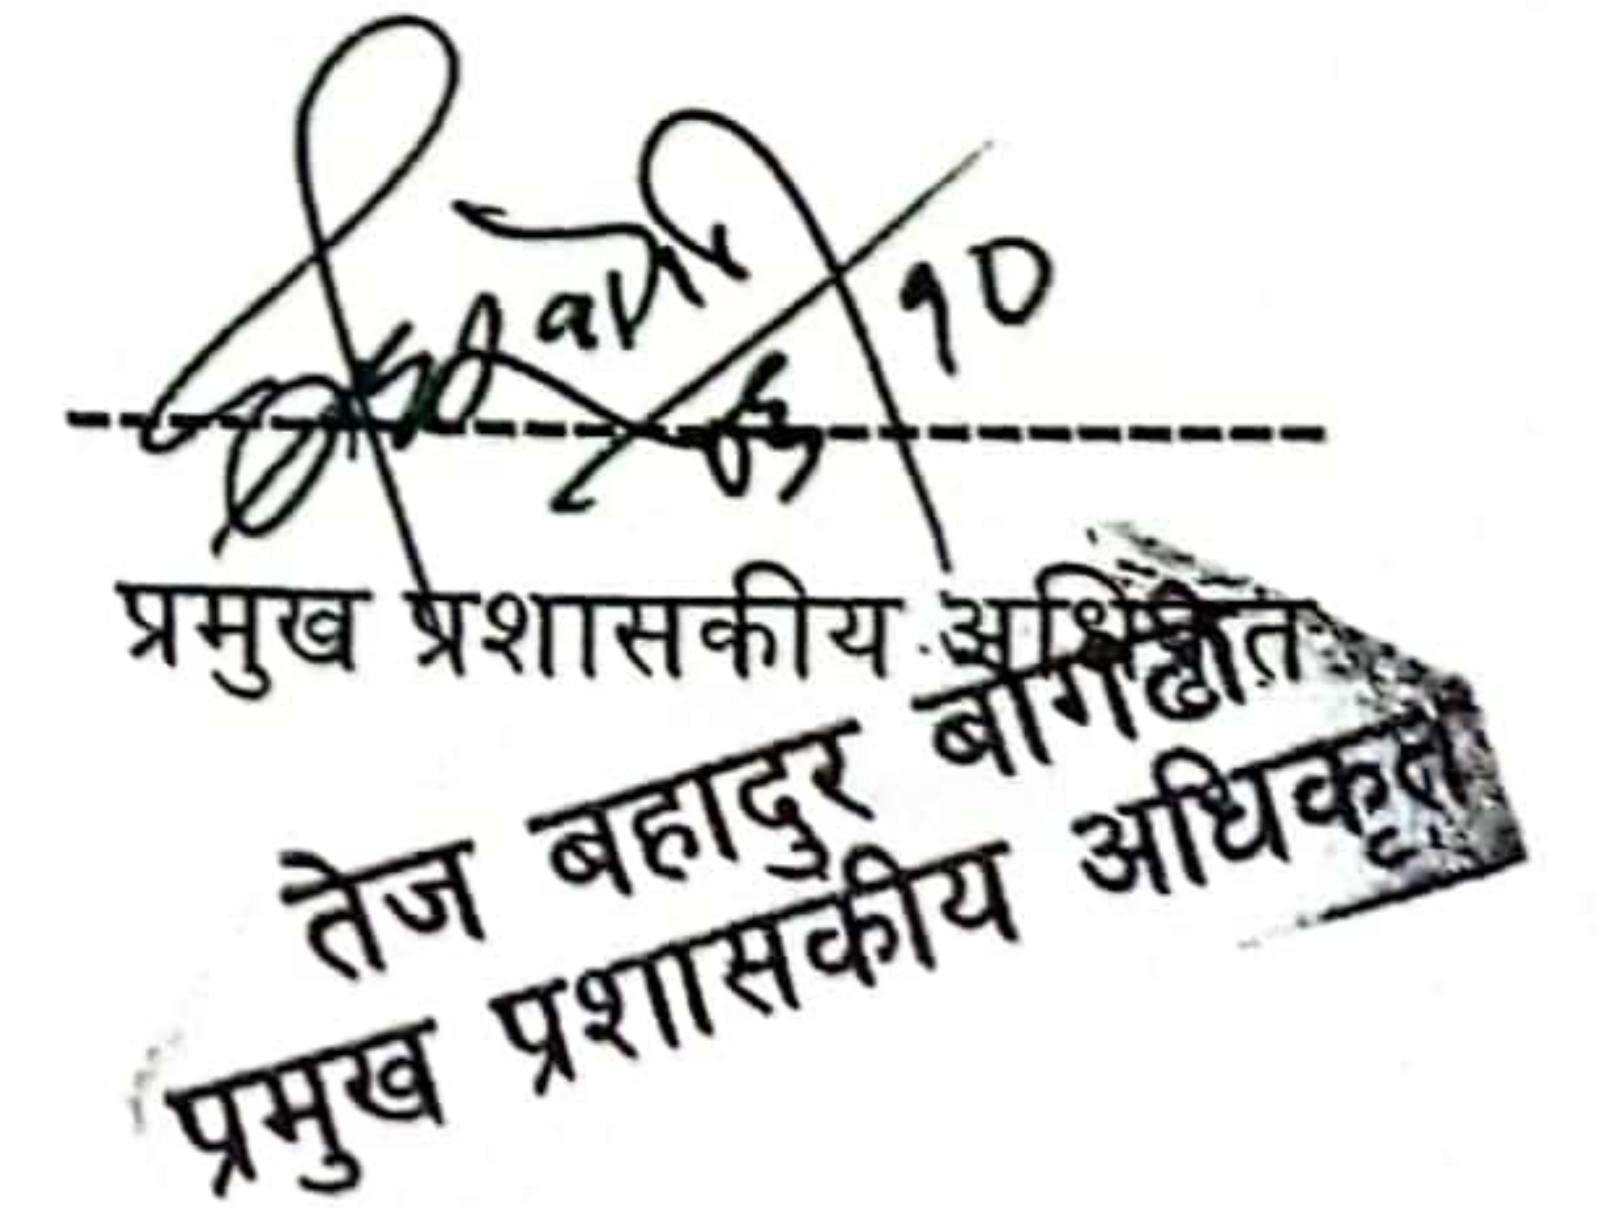 १०
प्रमुख प्रशासकीय अधिकृत
तेज बहादुर बोगटी
प्रमुख प्रशासकीय अधिकृत